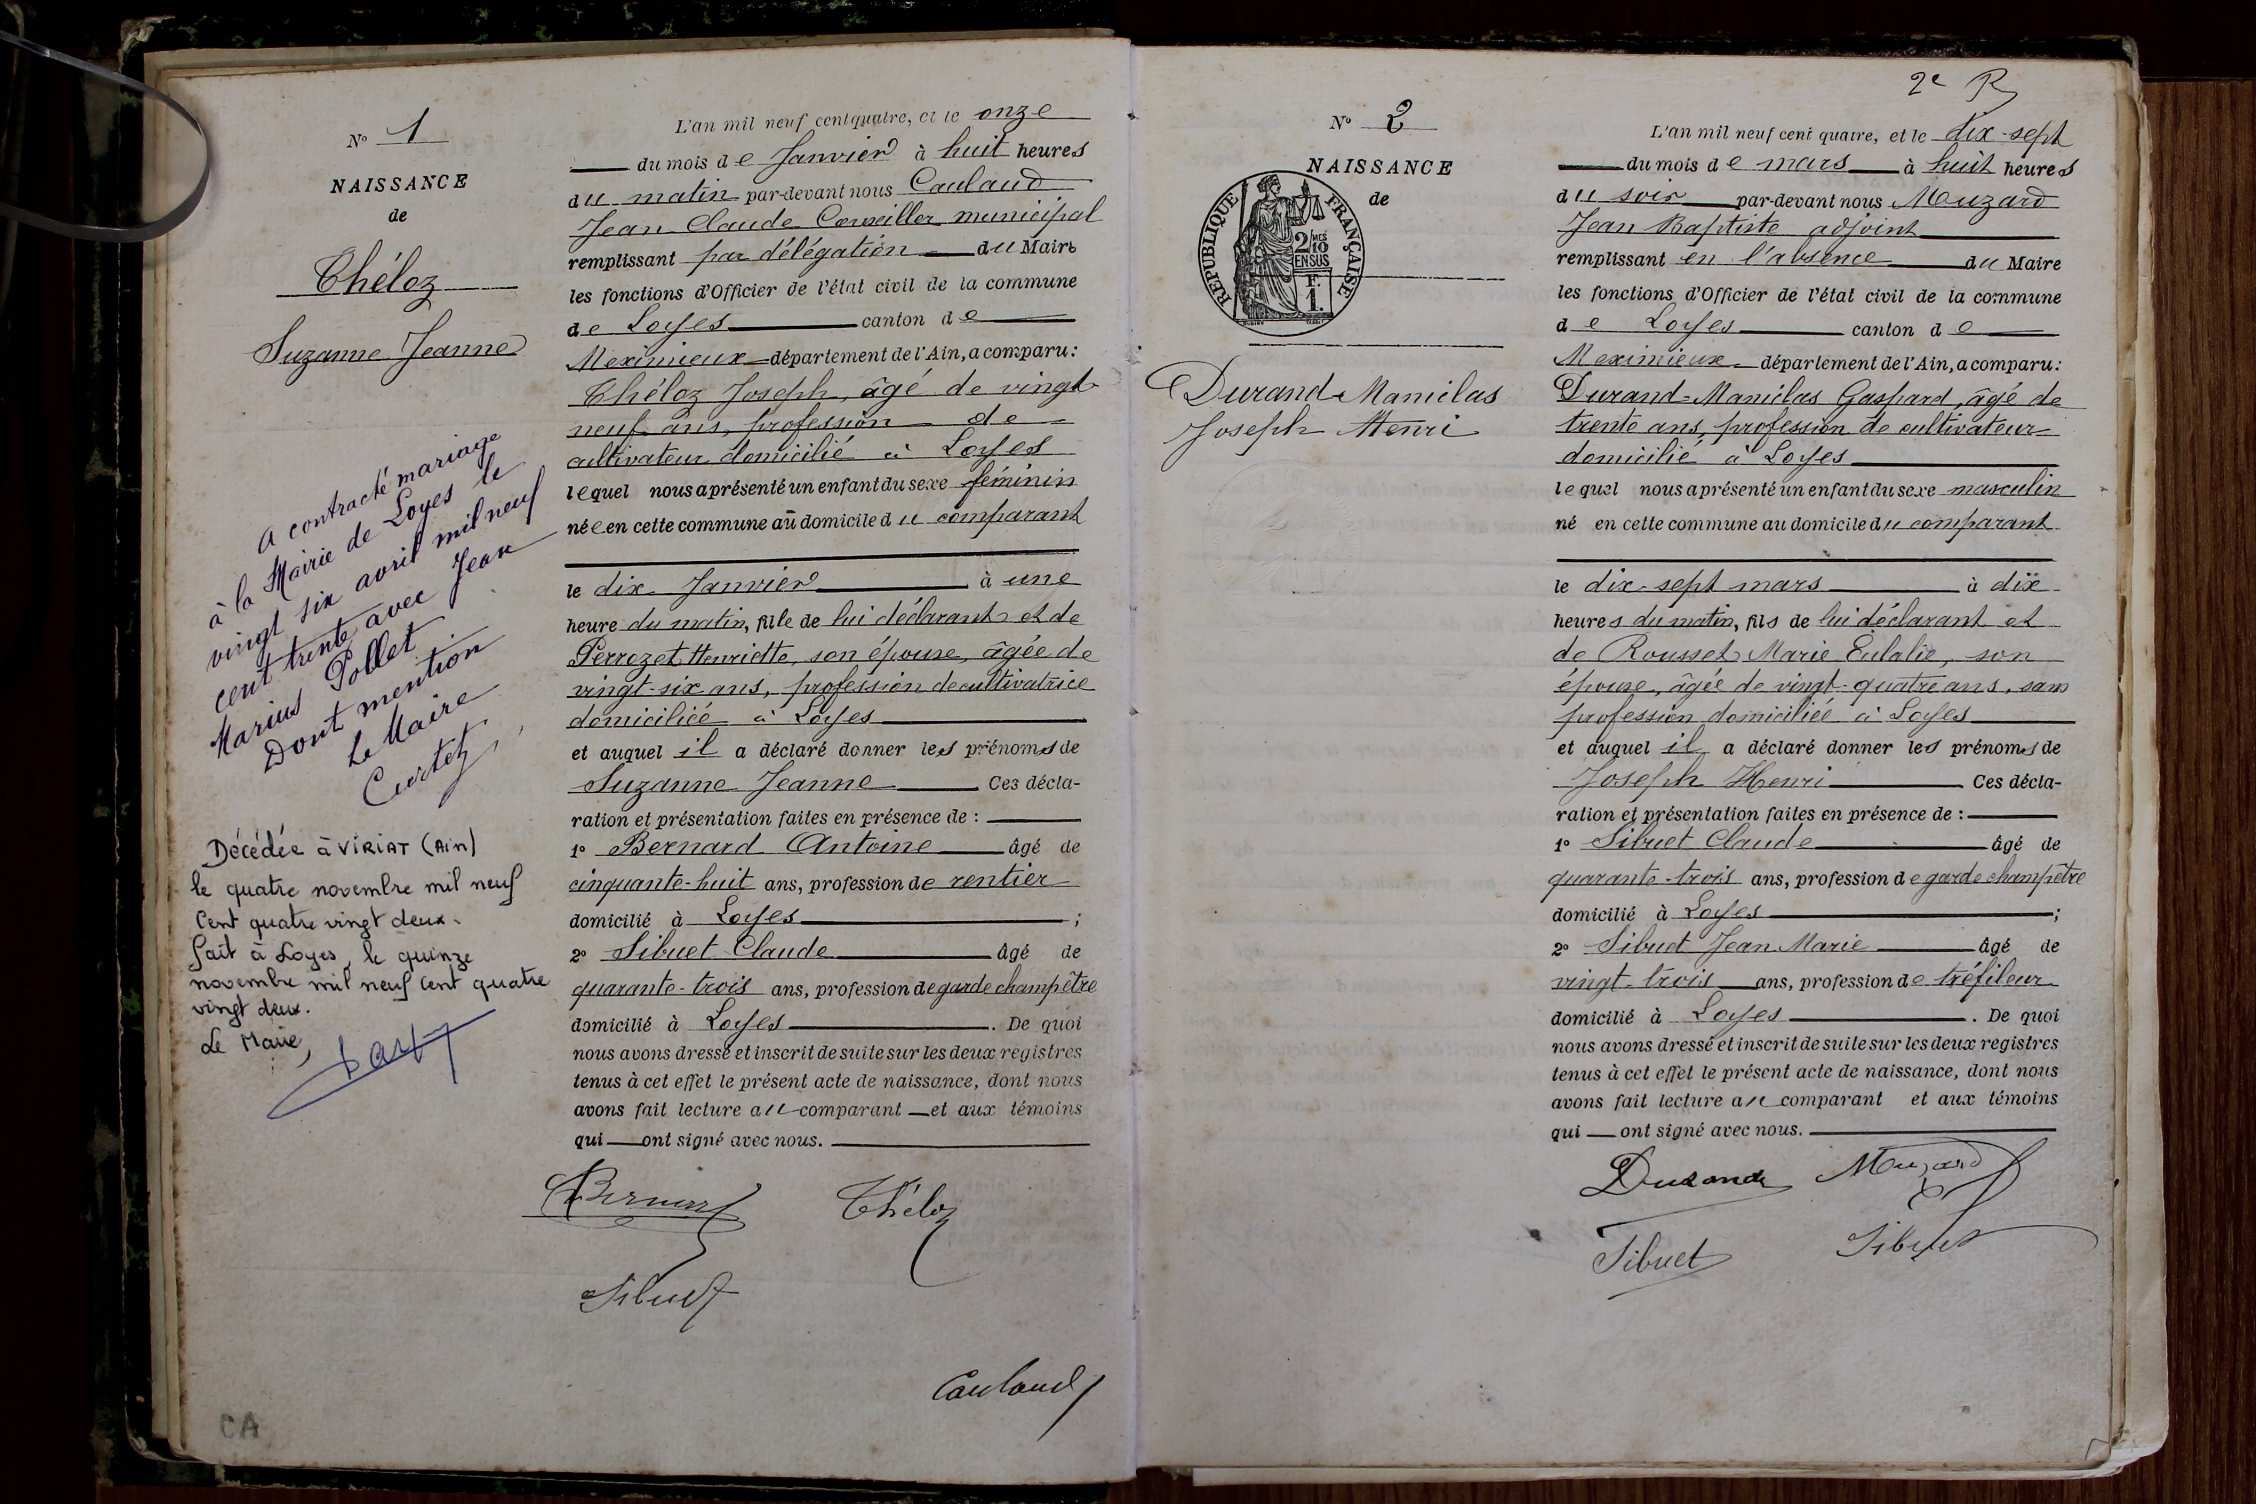 N° 1
NAISSANCE
de
Théloz
Suzanne Jeanne
a contracté mariage
à la Mairie de Loyes le
vingt six avril mil neuf
cent trente avec Jean
Marius Pollet
Dont mention
Le Maire
Curtet
Décédée à VIRIAT (Ain)
le quatre novembre mil neuf
Cent quatre vingt deux.
fait à Loyes, le quinze
novembre mil neuf cent quatre
vingt deux.
Le Maire,
CA
L'an mil neuf cent quatre, et le onze
du mois de Janvier à huit heures
du matin par-devant nous Caulaud
Jean Claude Conseiller municipal
remplissant par délégation du Maire
les fonctions d'Officier de l'état civil de la commune
de Loyes canton de
Meximieux département de l'Ain, a comparu :
Théloz Joseph, âgé de vingt
neuf ans, profession de
cultivateur domicilié à Loyes
lequel nous a présenté un enfant du sexe féminin
née en cette commune au domicile du comparant
le dix Janvier à une
heure du matin, fille de lui déclarant et de
Perrozet Henriette, son épouse, âgée de
vingt-six ans, profession de cultivatrice
domiciliée à Loyes
et auquel il a déclaré donner les prénoms de
Suzanne Jeanne Ces décla-
ration et présentation faites en présence de :
1° Bernard Antoine âgé de
cinquante-huit ans, profession de rentier
domicilié à Loyes ;
2° Sibuet Claude âgé de
quarante-trois ans, profession de garde champêtre
domicilié à Loyes . De quoi
nous avons dressé et inscrit de suite sur les deux registres
tenus à cet effet le présent acte de naissance, dont nous
avons fait lecture au comparant et aux témoins
qui ont signé avec nous.
Bernard Théloz
Sibuet
Caulaud
2e R
N° 2
NAISSANCE
de
RÉPUBLIQUE FRANÇAISE
2/10 MES
EN SUS
F.
1.
Durand-Maniélas
Joseph Henri
L'an mil neuf cent quatre, et le dix-sept
du mois de mars à huit heures
du soir par-devant nous Muzard
Jean Baptiste adjoint
remplissant en l'absence du Maire
les fonctions d'Officier de l'état civil de la commune
de Loyes canton de
Meximieux département de l'Ain, a comparu :
Durand-Maniélas Gaspard, âgé de
trente ans, profession de cultivateur
domicilié à Loyes
lequel nous a présenté un enfant du sexe masculin
né en cette commune au domicile du comparant
le dix-sept mars à dix
heures du matin, fils de lui déclarant et
de Rousset Marie Eulalie, son
épouse, âgée de vingt-quatre ans, sans
profession domiciliée à Loyes
et auquel il a déclaré donner les prénoms de
Joseph Henri Ces décla-
ration et présentation faites en présence de :
1° Sibuet Claude âgé de
quarante-trois ans, profession de garde champêtre
domicilié à Loyes ;
2° Sibuet Jean Marie âgé de
vingt-trois ans, profession de tréfileur
domicilié à Loyes . De quoi
nous avons dressé et inscrit de suite sur les deux registres
tenus à cet effet le présent acte de naissance, dont nous
avons fait lecture au comparant et aux témoins
qui ont signé avec nous.
Durand Muzard
Sibuet Sibuet